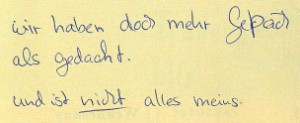 wir haben doch mehr Gepäck
als gedacht.
und ist nicht alles meins.